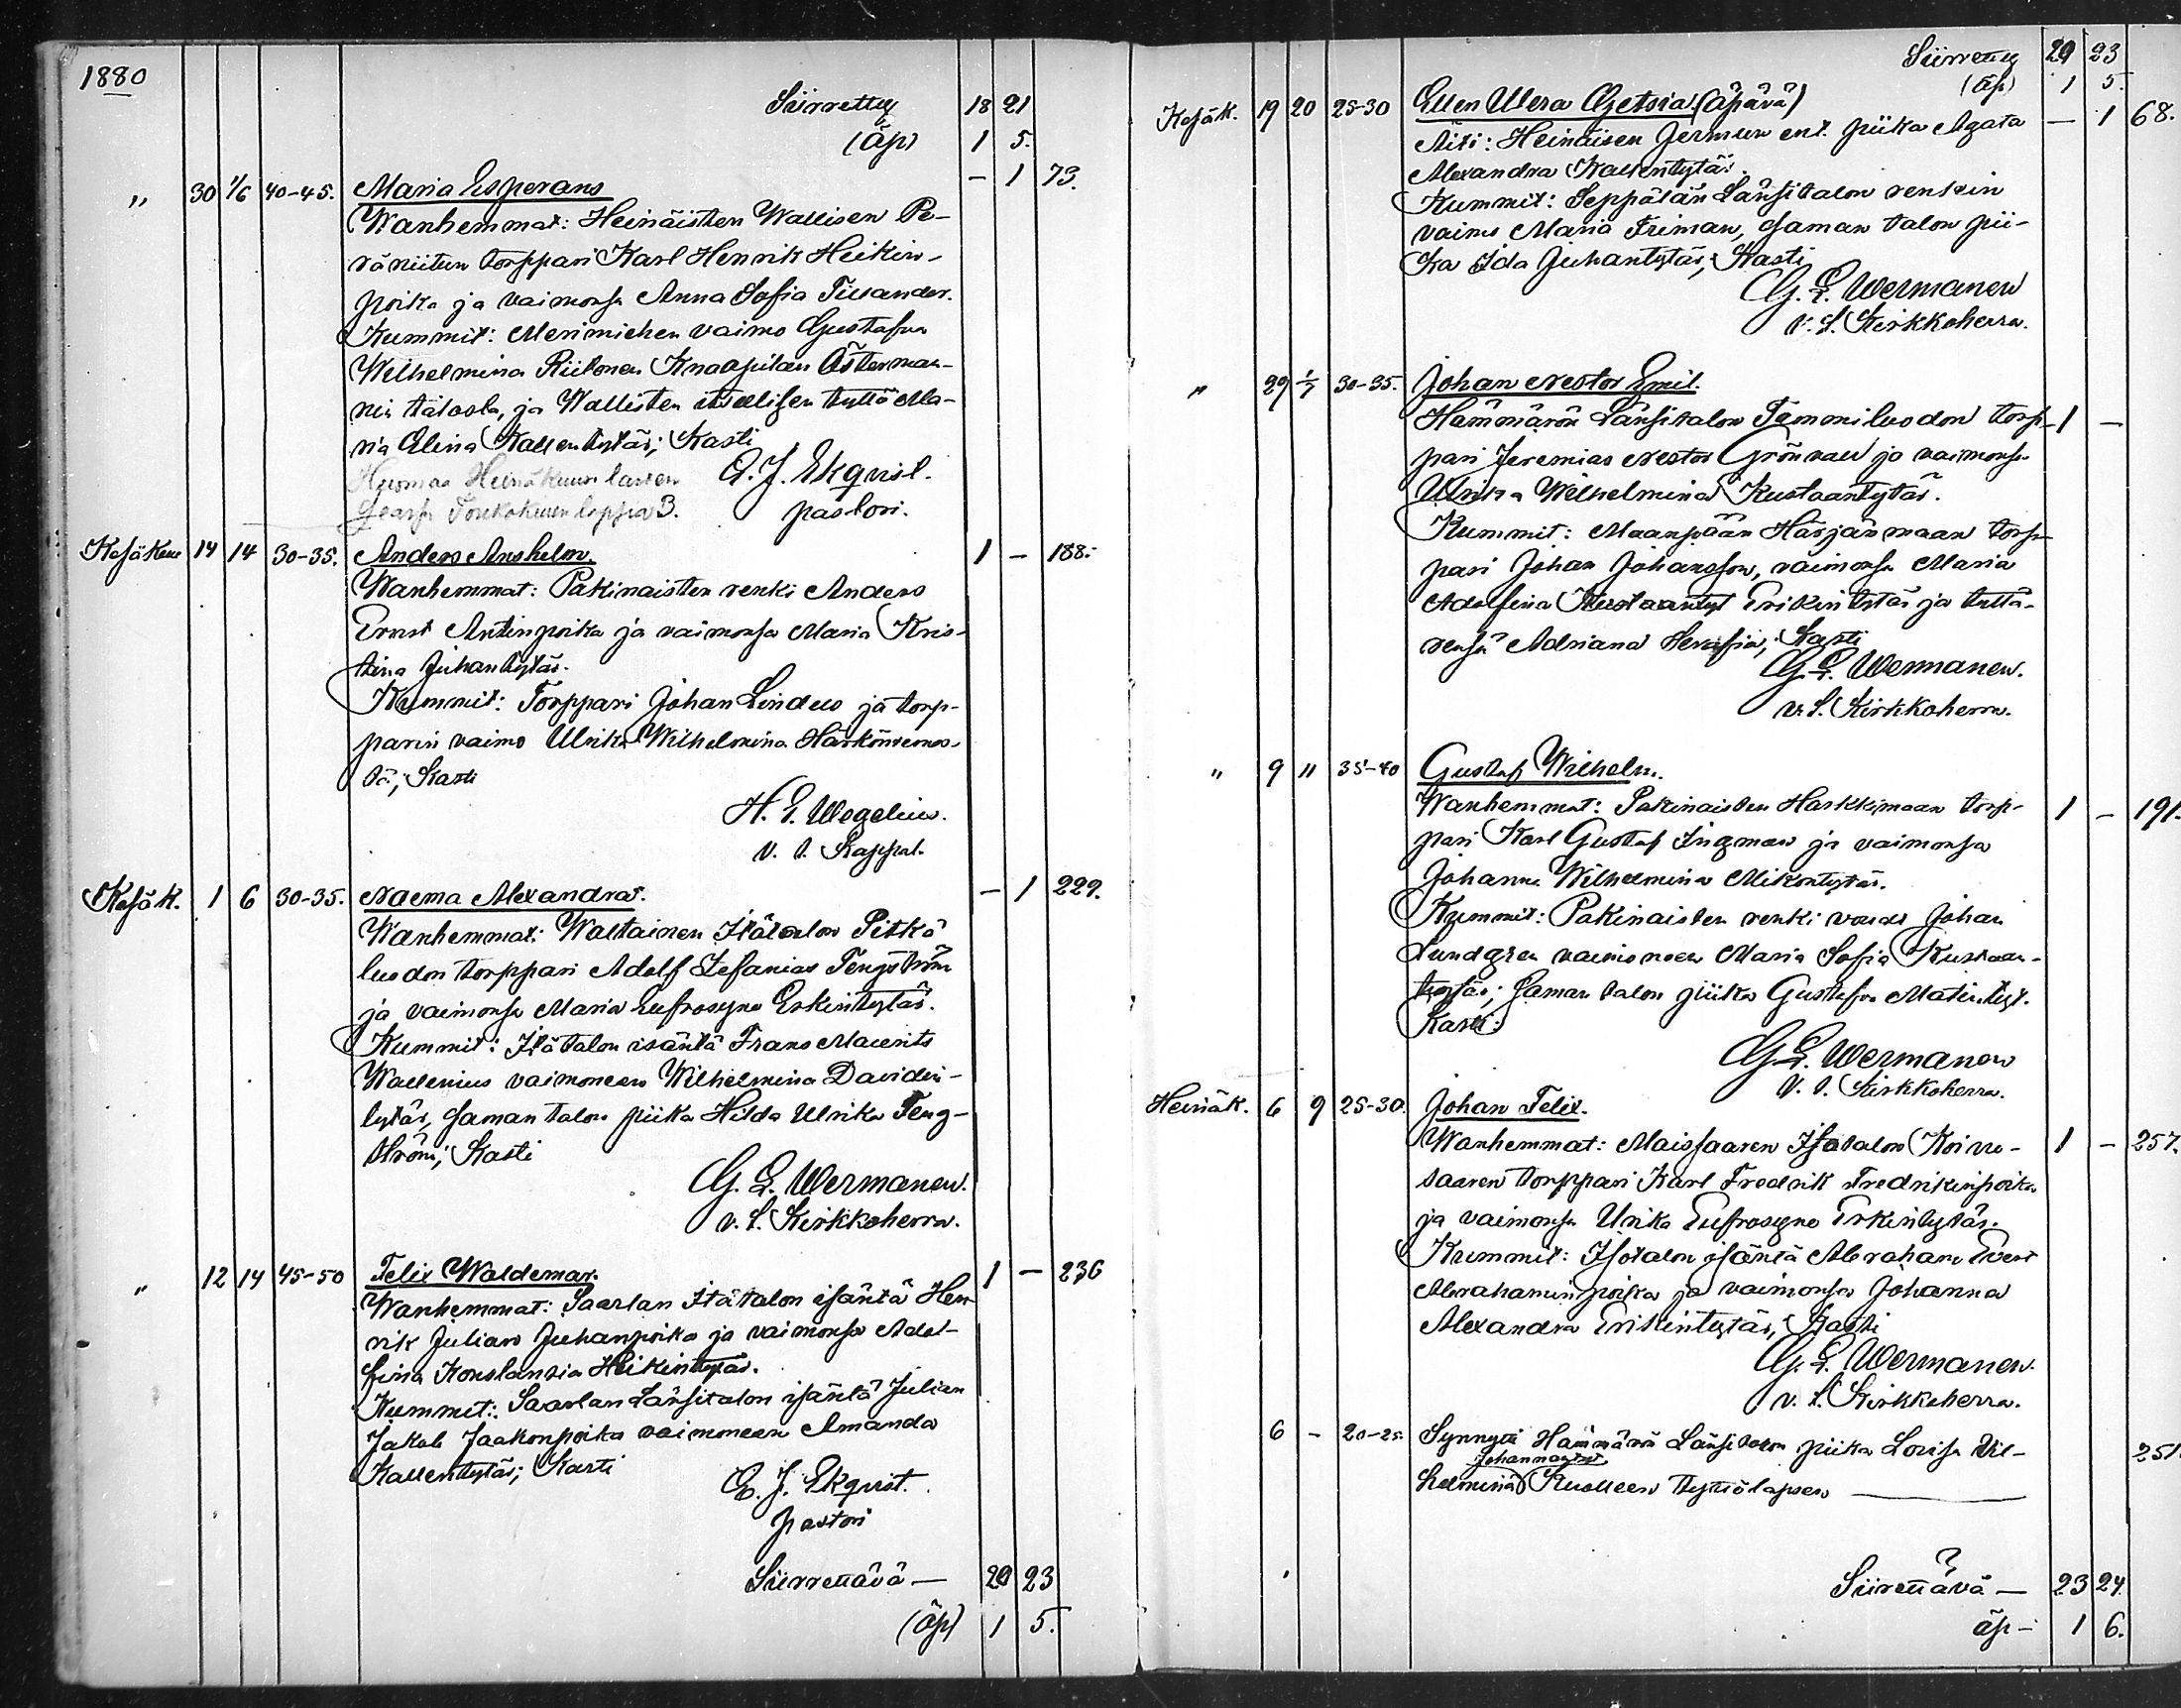 1880
Siirretty 18 21
(Äp) 1 5.
" 30 1/6 40-45. Maria Esperans — 1 73.
Wanhemmat: Heinäisten Wallisen Pe-
räniitun torppari Karl Henrik Heikin-
poika ja vaimonsa Anna Sofia Tillander.
Kummit: Merimiehen vaimo Gustafva
Wilhelmina Riikonen Knaapilan Österman-
nin talosta, ja Wallisten itsellisen tyttö Ma-
ria Elina Kallentytär; Kasti
Heinäkuun E. J. Ekqvist.
Toukokuun pastori.
Kesäkuu 14 14 30-35. Anders Anshelm. 1 — 188.
Wanhemmat: Pakinaisten renki Anders
Ernst Antinpoika ja vaimonsa Maria Kris-
tina Juhantytär.
Kummit: Torppari Johan Lindus ja torp-
parin vaimo Ulrika Wilhelmina
tä; Kasti
H. E. Wegelius.
v. t. Kappal.
Kesäk. 1 6 30-35. Naema Alexandra. — 1 229.
Wanhemmat: Waltainen Itätalon Pitkä
luodon torppari Adolf Stefanias Tengström
ja vaimonsa Maria Eufrosyne Erkintytär.
Kummit: Itätalon isäntä Frans Maurits
Wallenius vaimoneen Wilhelmina Davidin-
tytär, saman talon piika Hilda Ulrika Teng-
ström; Kasti
G. E. Wermanen.
v. t. Kirkkoherra.
" 12 14 45-50 Felix Waldemar. 1 — 236
Wanhemmat: Saarlan Itätalon isäntä Hen-
rik Julian Juhanpoika ja vaimonsa Adol-
fina Konstantia Heikintytär.
Kummit: Saarlan Länsitalon isäntä Julian
Jakob Jaakonpoika vaimoneen Amanda
Kallentytär; Kasti
E. J. Ekqvist.
pastori
Siirrettävä — 20 23
(äp) 1 5.
Siirretty 20 23
(äp) 1 5.
Kesäk. 19 20 25-30 Ellen Wera (äpärä) — 1 68.
Äiti: Heinäisen Jermun ent. piika Agata
Alexandra Kallentytär.
Kummit: Seppälän Länsitalon renkin
vaimo Maria Friman, saman talon pii-
ka Ida Juhantytär; Kasti
G. E. Wermanen
v. t. Kirkkoherra.
" 29 1/7 30-35. Johan Nestor Emil.
Hammärön Länsitalon Tammiluodon torp- 1 —
pari Jeremias Nestor Grönvall ja vaimonsa
Ulrika Wilhelmina Kustaantytär.
Kummit: Maanpään Härjänmaan torp-
pari Johan Johansson, vaimonsa Maria
Adolfina Kustaantyt Erikintytär ja tyttä-
rensä Adriana Serafia; Kasti
G. E. Wermanen.
v. t. Kirkkoherra.
" 9 11 35-40 Gustaf Wilhelm.
Wanhemmat: Pakinaisten Harkkimaan torp- 1 — 191.
pari Karl Gustaf Ingman ja vaimonsa
Johanna Wilhelmina Mikontytär.
Kummit: Pakinaisten renki vouti Johan
Lundgren vaimoneen Maria Sofia Kustaan-
tytär; saman talon piika Gustafva Matintyt.
Kasti:
G. E. Wermanen
v. t. Kirkkoherra.
Heinäk. 6 9 25-30. Johan Felix.
Wanhemmat: Maissaaren Isotalon Koivu- 1 — 257.
saaren torppari Karl Fredrik Fredrikinpoika
ja vaimonsa Ulrika Eufrosyne Erkintytär.
Kummit: Isotalon isäntä Abraham Evert
Abrahaminpoika ja vaimonsa Johanna
Alexandra Erikintytär, Kasti
G. E. Wermanen.
v. t. Kirkkoherra.
6 — 20-25. Synnytti Hammärö Länsitalon piika Lovisa Vil- 251
Johannantyt
helmina Kuolleen tyttölapsen —
Siirettävä — 23 24.
äp — 1 6.